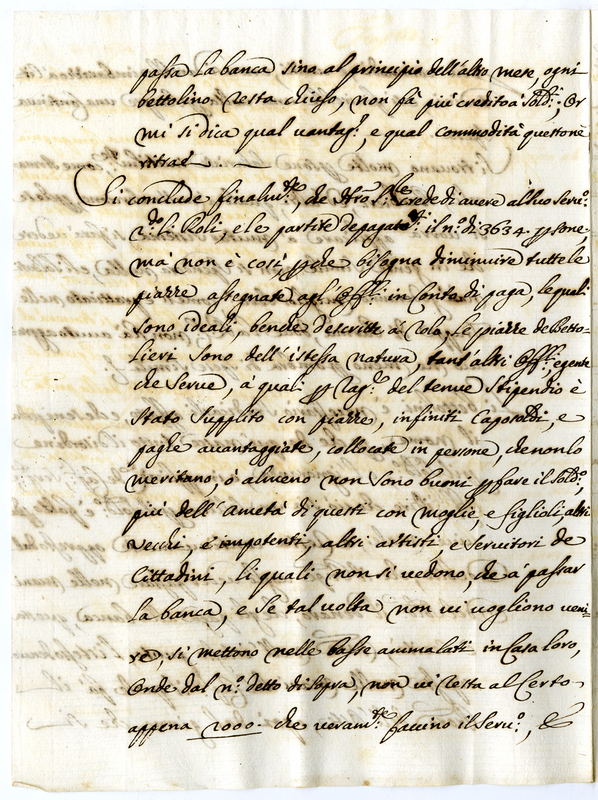 passa la banca sina al principio dell'altro mese, ogni
bettolino resta chiuso, non fà più credito à Sold.i; Or
mi si dica qual vantag.o, e qual commodità questo nè
ritrae
Si conclude finalm.te, che crede di avere al suo Serv.o
Roli, e le partite de pagate il n.o di 3634. psone
mà non è così pche bisogna diminuire tutte le
piazze assegnate agl'Off.li in Conto di paga, le quali
sono ideali, benche descritte à Rolo, Le piazze de Betto-
lieri sono dell'istessa natura, tant'altri Off.li, e gente
che Serve, à quali p rag.e del tenue Stipendio è
stato Supplito con piazze, infiniti Caposoldi, e
paghe avantaggiate, collocate in persone, che non lo
meritano, ò almeno non sono buoni p fare il Sold.o,
più dell'ametà di questi con moglie, e figlioli, altri
vecchi, e impotenti, altri artisti, e Servitori de
Cittadini, li quali non si vedono, che à passar
La banca, e Se tal volta non vi vogliono veni=
re, si mettono nelle basse ammalati in Casa loro,
Onde dal n.o detto di sopra, non vi resta al Certo
appena 2000. che veram.te faccino il Serv.o, &